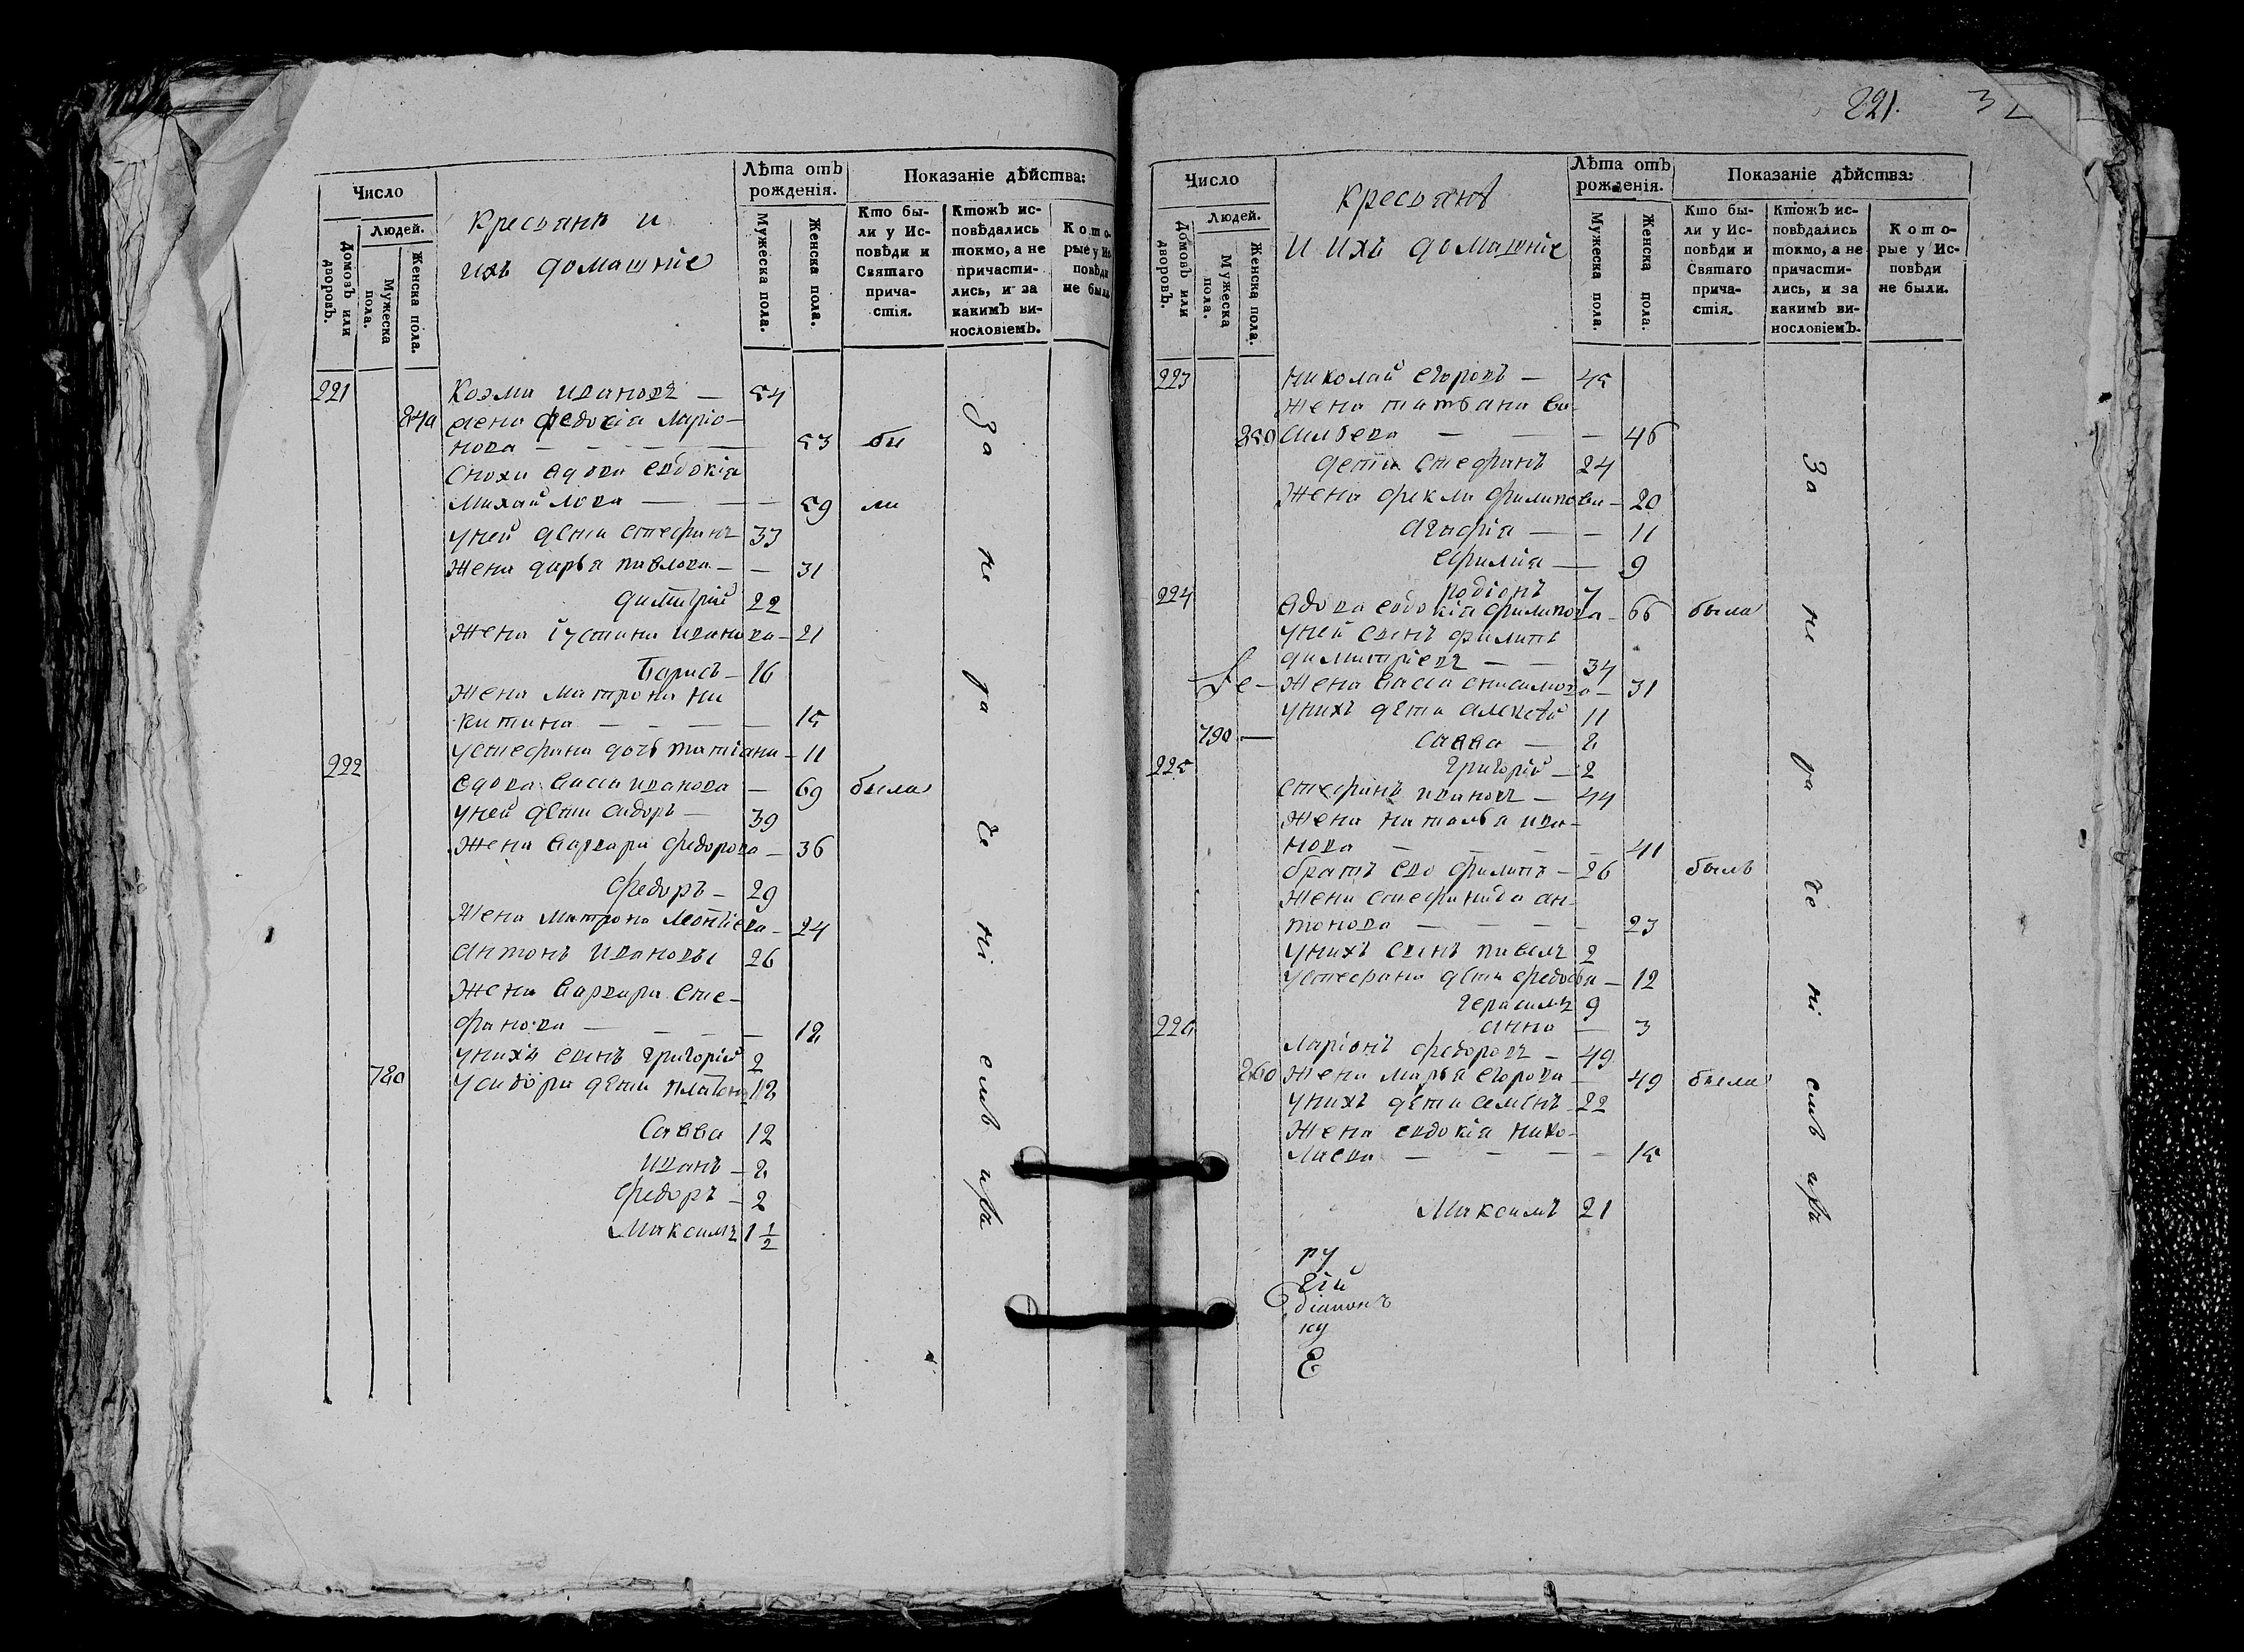 Число
Лѣта отъ рожденія.
Показаніе дѣйства:
Людей.
Домовъ или дворовъ.
Мужеска пола.
Женска пола.
кресьяня и
ихъ домашніе
Мужеска пола.
Женска пола.
Кто бы-
ли у Ис-
повѣди и
Святаго
прича-
стія.
Ктожъ ис-
повѣдались
токмо, а не
причасти-
лись, и за
какимъ ви-
нословіемъ.
Кото-
рые у Ис
повѣди
не были
221 Козма ивановъ — 54
жена федосіа ларіо-
нова — 53 бы
Сноха вдова евдокіа
михайлова — 59 ли
уней дети стефанъ 33
жена дарья павлова — 31
димитрій 22
жена іустина иванова — 21
Борисъ — 16
жена матрона ни
китина — 15
устефана дочь татіана — 11
222
вдова васса иванова — 69 была
уней дети сидоръ — 39
жена варвара федорова — 36
федоръ — 29
жена матрона леонтіева — 24
антонъ ивановъ 26
жена варвара сте-
фанова — 18
унихъ сынъ григорій 2
780 усидора дети платонъ 18
Савва 12
иванъ — 8
федоръ — 2
Максимъ 1 1/2
за не ра че ні емъ
221.
Число
Лѣта отъ рожденія.
Показаніе дѣйства:
Людей.
Домовъ или дворовъ.
Мужеска пола.
Женска пола.
кресьянѣ
и ихъ домашніе
Мужеска пола.
Женска пола.
Кто бы-
ли у Ис-
повѣди и
Святаго
прича-
стія.
Ктожъ ис-
повѣдались
токмо, а не
причасти-
лись, и за
какимъ ви-
нословіемъ.
Кото-
рые у Ис-
повѣди
не были.
223 николай егоровъ — 45
жена татьана ва-
850 сильева — 46
дети стефанъ 24
жена фекла филипова — 20
агафіа — 11
9
родіонъ 7
224 вдова евдокіа филипова — 66 была
уней сынъ филипъ
димитріевъ — 34
жена васса — 31
унихъ дети алексѣй 11
790 — савва — 8
225 григорій — 2
стефанъ ивановъ — 44
жена наталья ива-
нова — 41
братъ ево филипъ — 26 былъ
жена стефанида ан-
тонова — 23
унихъ сынъ павелъ 2
устефана дети федосьа — 12
герасимъ 9
226 анна — 3
ларіонъ федоровъ — 49
860 жена марья егорова — 49 была
унихъ дети семенъ 22
жена евдокіа нико-
лаева — 15
Максимъ 21
за не ра че ні емъ
ру
гій
діаконъ
ку